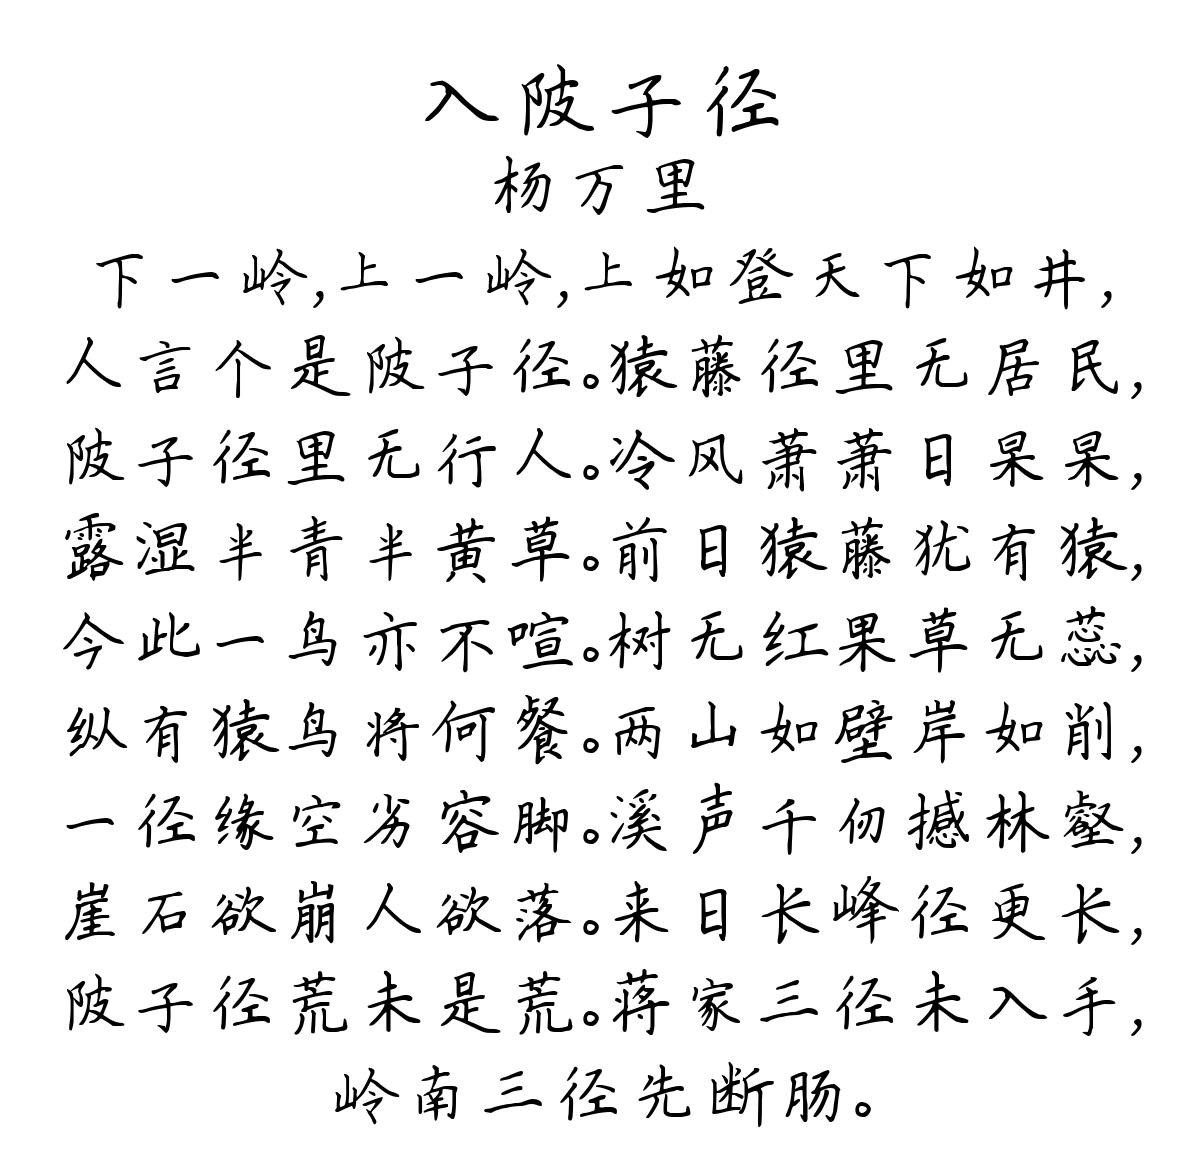 入陂子径
杨万里
下一岭,上一岭,上如登天下如井,
人言个是陂子径。猿藤径里无居民,
陂子径里无行人。冷风萧萧日杲杲,
露湿半青半黄草。前日猿藤犹有猿,
今此一鸟亦不喧。树无红果草无蕊,
纵有猿鸟将何餐。两山如壁岸如削,
一径缘空劣容脚。溪声千仞撼林壑,
崖石欲崩人欲落。来日长峰径更长,
陂子径荒未是荒。蒋家三径未入手,
岭南三径先断肠。